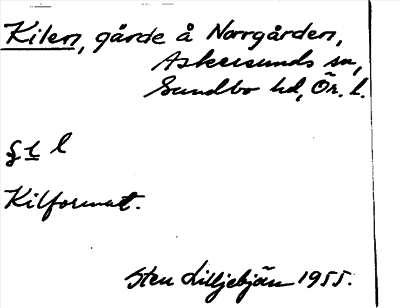 Kilen, gärde å Norrgården,
Askersunds sn,
Sundbo hd, Ör. l.
l
Kilformat.
Sten Lilljebjörn 1955.